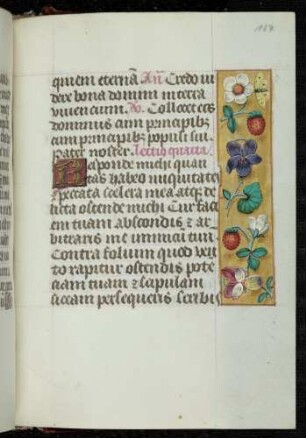 157
quiem eternā Añ Credo vi
dere bona domini in terra
viventium. V. Collocet eos
dominus cum principibꝫ
cum principibꝫ populi sui.
Pater noster. Lectio quarta
Responde michi quan
tas habeo iniquitates
peccata scelera mea atqꝫ de
licta ostende michi Cur faci
em tuam abscondis ⁊ ar
bitraris me inimicū tuū
Contra folium quod ven
to rapitur ostendis pote
ciam tuam ⁊ stipulam
siccam persequeris scribis